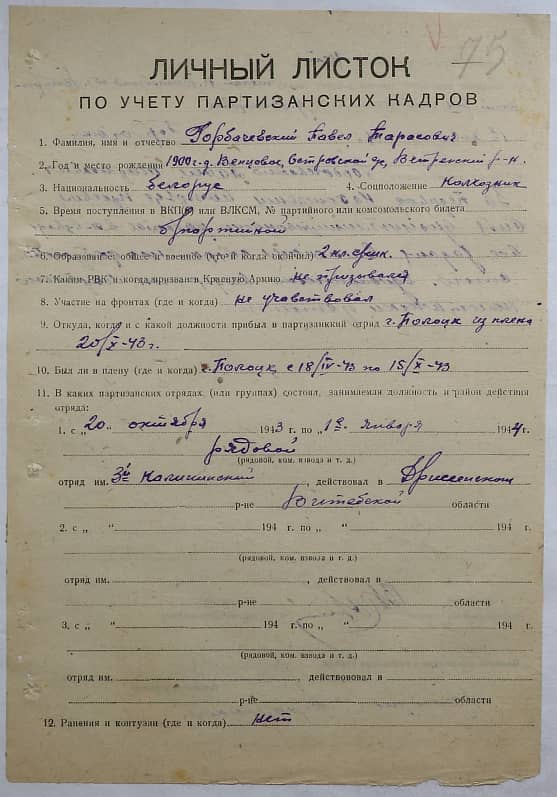 75
ЛИЧНЫЙ ЛИСТОК
ПО УЧЕТУ ПАРТИЗАНСКИХ КАДРОВ
1. Фамилия, имя и отчество Горбачевский Павел Тарасович
2. Год и место рождения 1900 г. д. Венцовое, Островской , Ветренский р-н.
3. Национальность Белорус 4. Соцположение Колхозник
5. Время поступления в ВКП(б) или ВЛКСМ, № партийного или комсомольского билета
Безпартийной
6. Образование: общее и военное (что и когда окончил) 2 кл.
7. Каким РВК и когда призван в Красную Армию не призывался
8. Участие на фронтах (где и когда) не учавствовал
9. Откуда, когда и с какой должности прибыл в партизанкий отряд г. Полоцк из плена
20/X-43 г.
10. Был ли в плену (где и когда) г. Полоцк с 18/IV-43 по 15/X-43
11. В каких партизанских отрядах (или группах) состоял, занимаемая должность и район действия
отряда:
1. с „20„ октября 1943 г. по „1е„ января 1944 г.
рядовой
(рядовой, ком. взвода и т. д.)
отряд им. 3й Калининский, действовал в Дриссенском
р-не Витебской области
2. с „ “ 194 г. по „ “ 194 г.
(рядовой, ком. взвода и т. д.)
отряд им. , действовал в
р-не области
3. с „ “ 194 г. по „ “ 194 г.
(рядовой, ком. взвода и т. д.)
отряд им. , действовал в
р-не области
12. Ранения и контузии (где и когда) нет